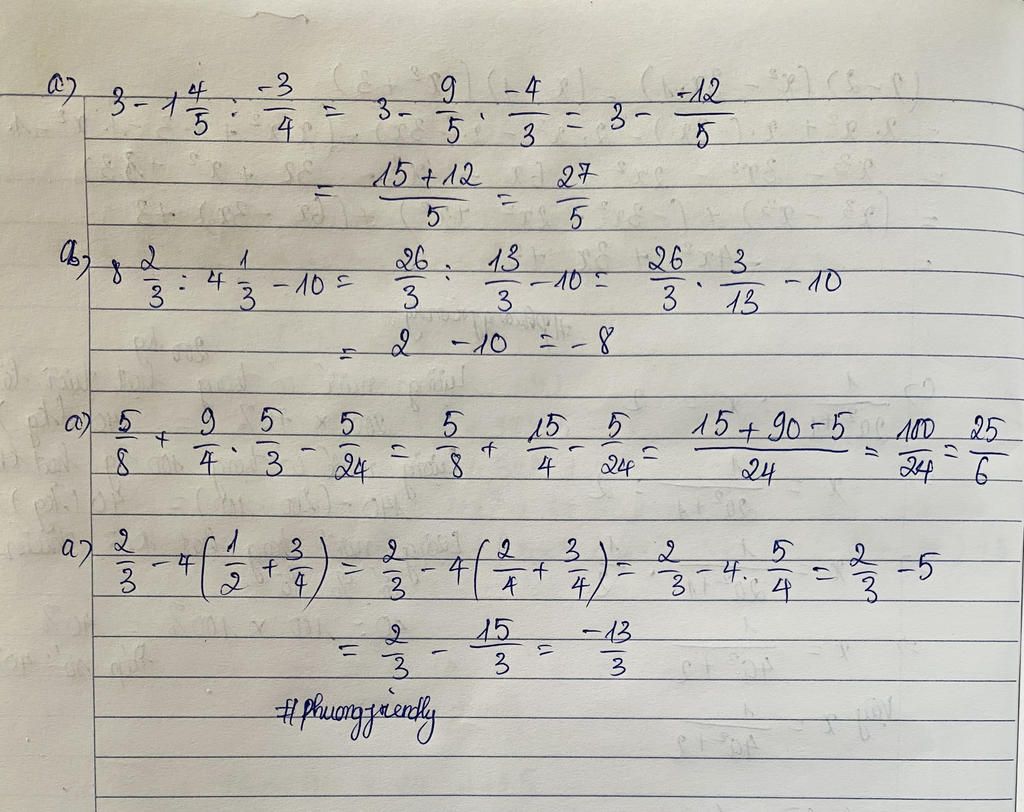 a) 3 - 1 4/5 : -3/4 = 3 - 9/5 . -4/3 = 3 - -12/5
= 15 + 12/5 = 27/5
b) 8 2/3 : 4 1/3 - 10 = 26/3 : 13/3 - 10 = 26/3 . 3/13 - 10
= 2 - 10 = - 8
a) 5/8 + 9/4 . 5/3 - 5/24 = 5/8 + 15/4 - 5/24 = 15 + 90 - 5/24 = 100/24 = 25/6
a) 2/3 - 4 (1/2 + 3/4) = 2/3 - 4 (2/4 + 3/4) = 2/3 - 4 . 5/4 = 2/3 - 5
= 2/3 - 15/3 = -13/3
#phuongfriendly